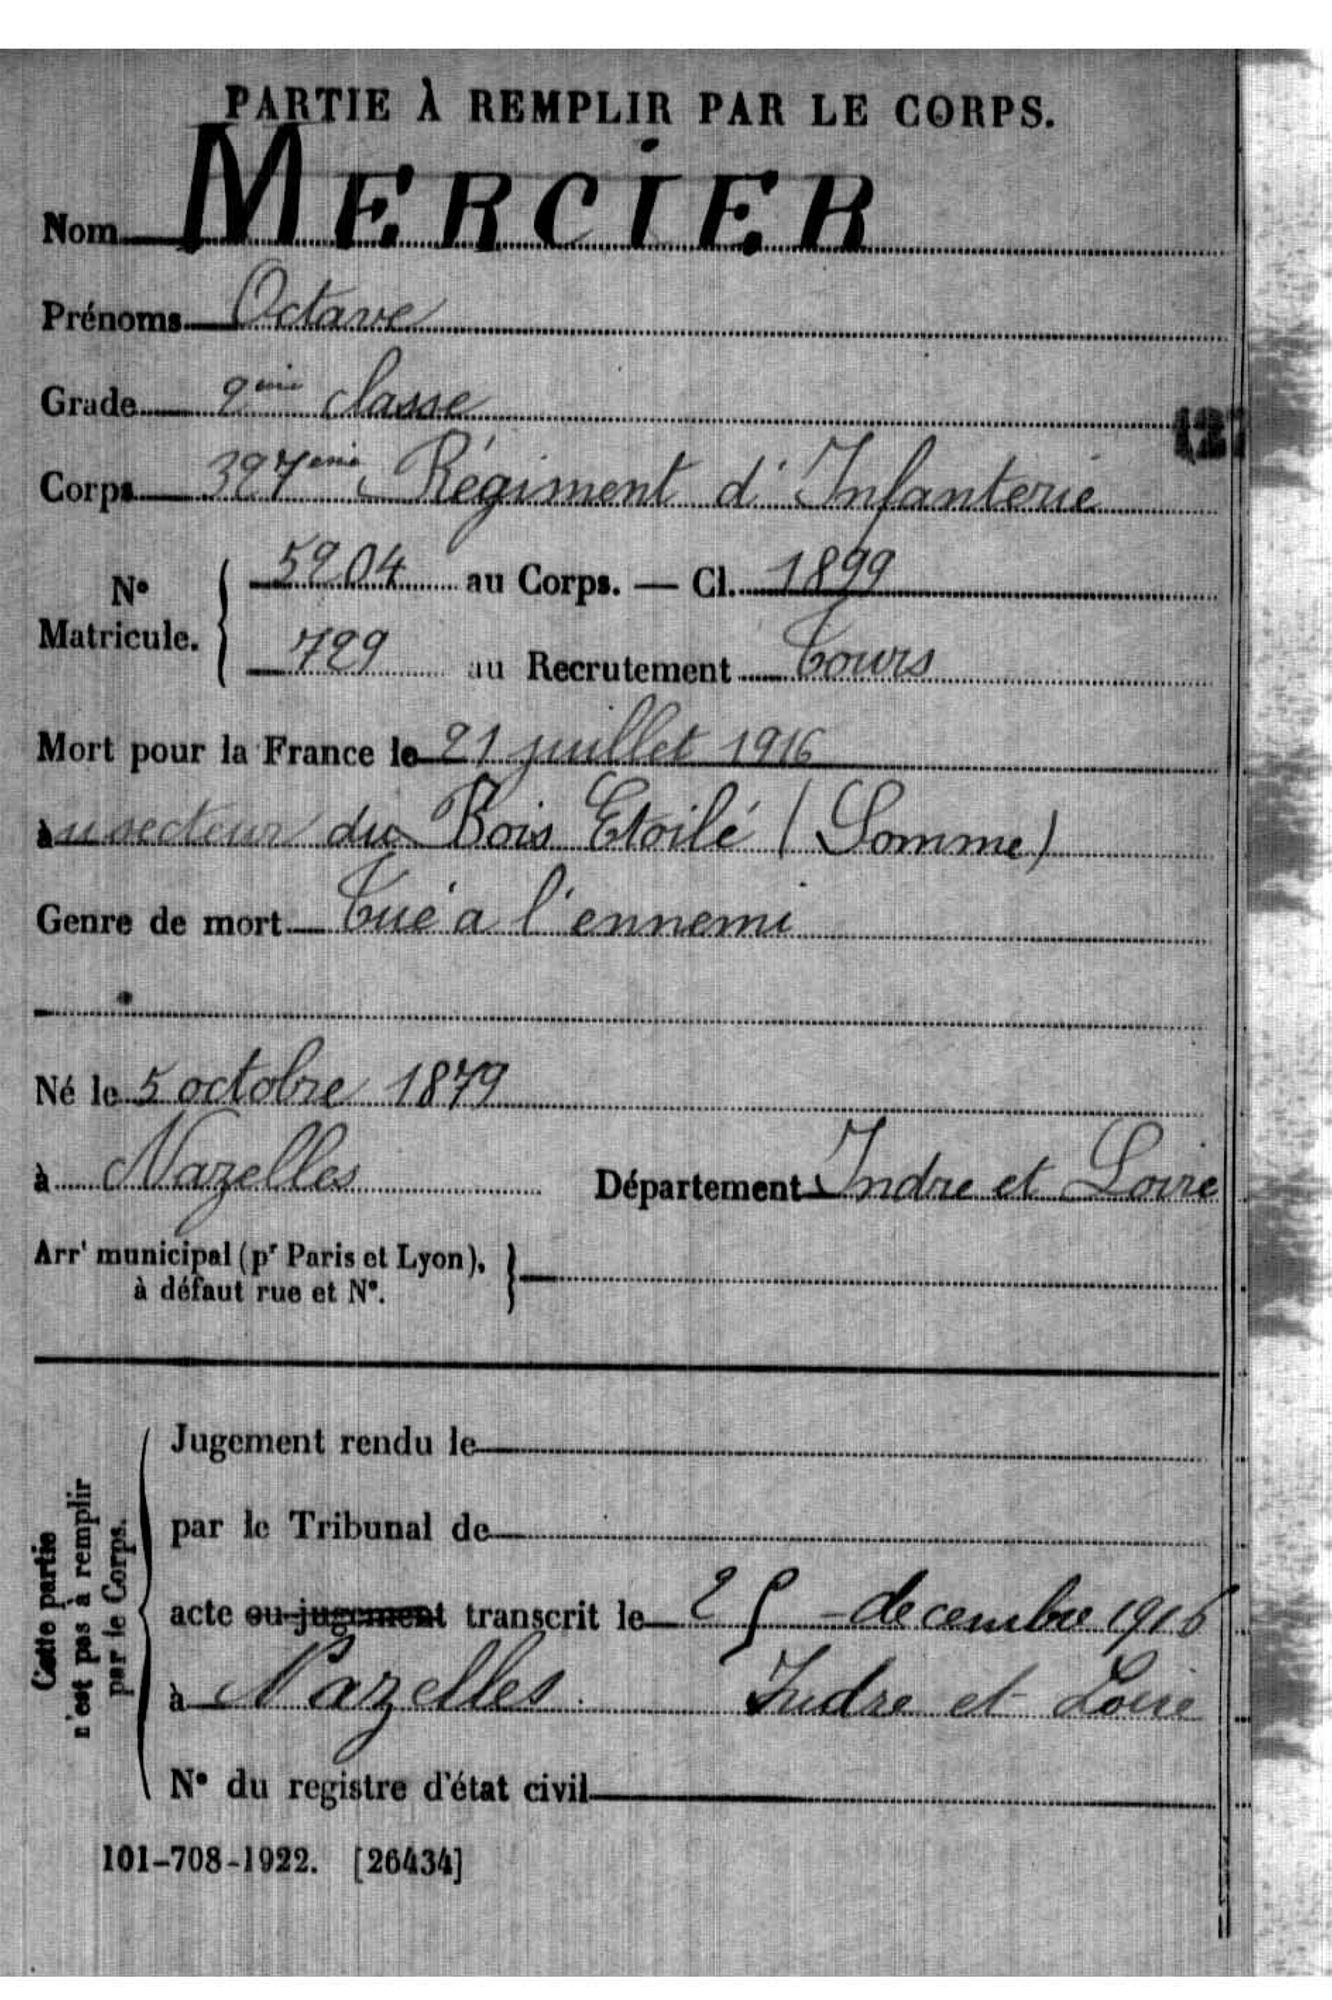 PARTIE À REMPLIR PAR LE CORPS.
Nom MERCIER
Prénoms Octave
Grade 2ème classe
Corps 327ème Régiment d'Infanterie
N° Matricule. 5204 au Corps. — Cl. 1899
729 au Recrutement Tours
Mort pour la France le 21 juillet 1916
au secteur du Bois Etoilé (Somme)
Genre de mort Tué a l'ennemi
Né le 5 octobre 1879
à Nazelles Département Indre et Loire
Arrt municipal (pr Paris et Lyon),
à défaut rue et N°.
Cette partie
n'est pas à remplir
par le Corps.
Jugement rendu le
par le Tribunal de
acte ou jugement transcrit le 25 - decembre 1916
à Nazelles. Indre et Loire
N° du registre d'état civil
101-708-1922. [26434]